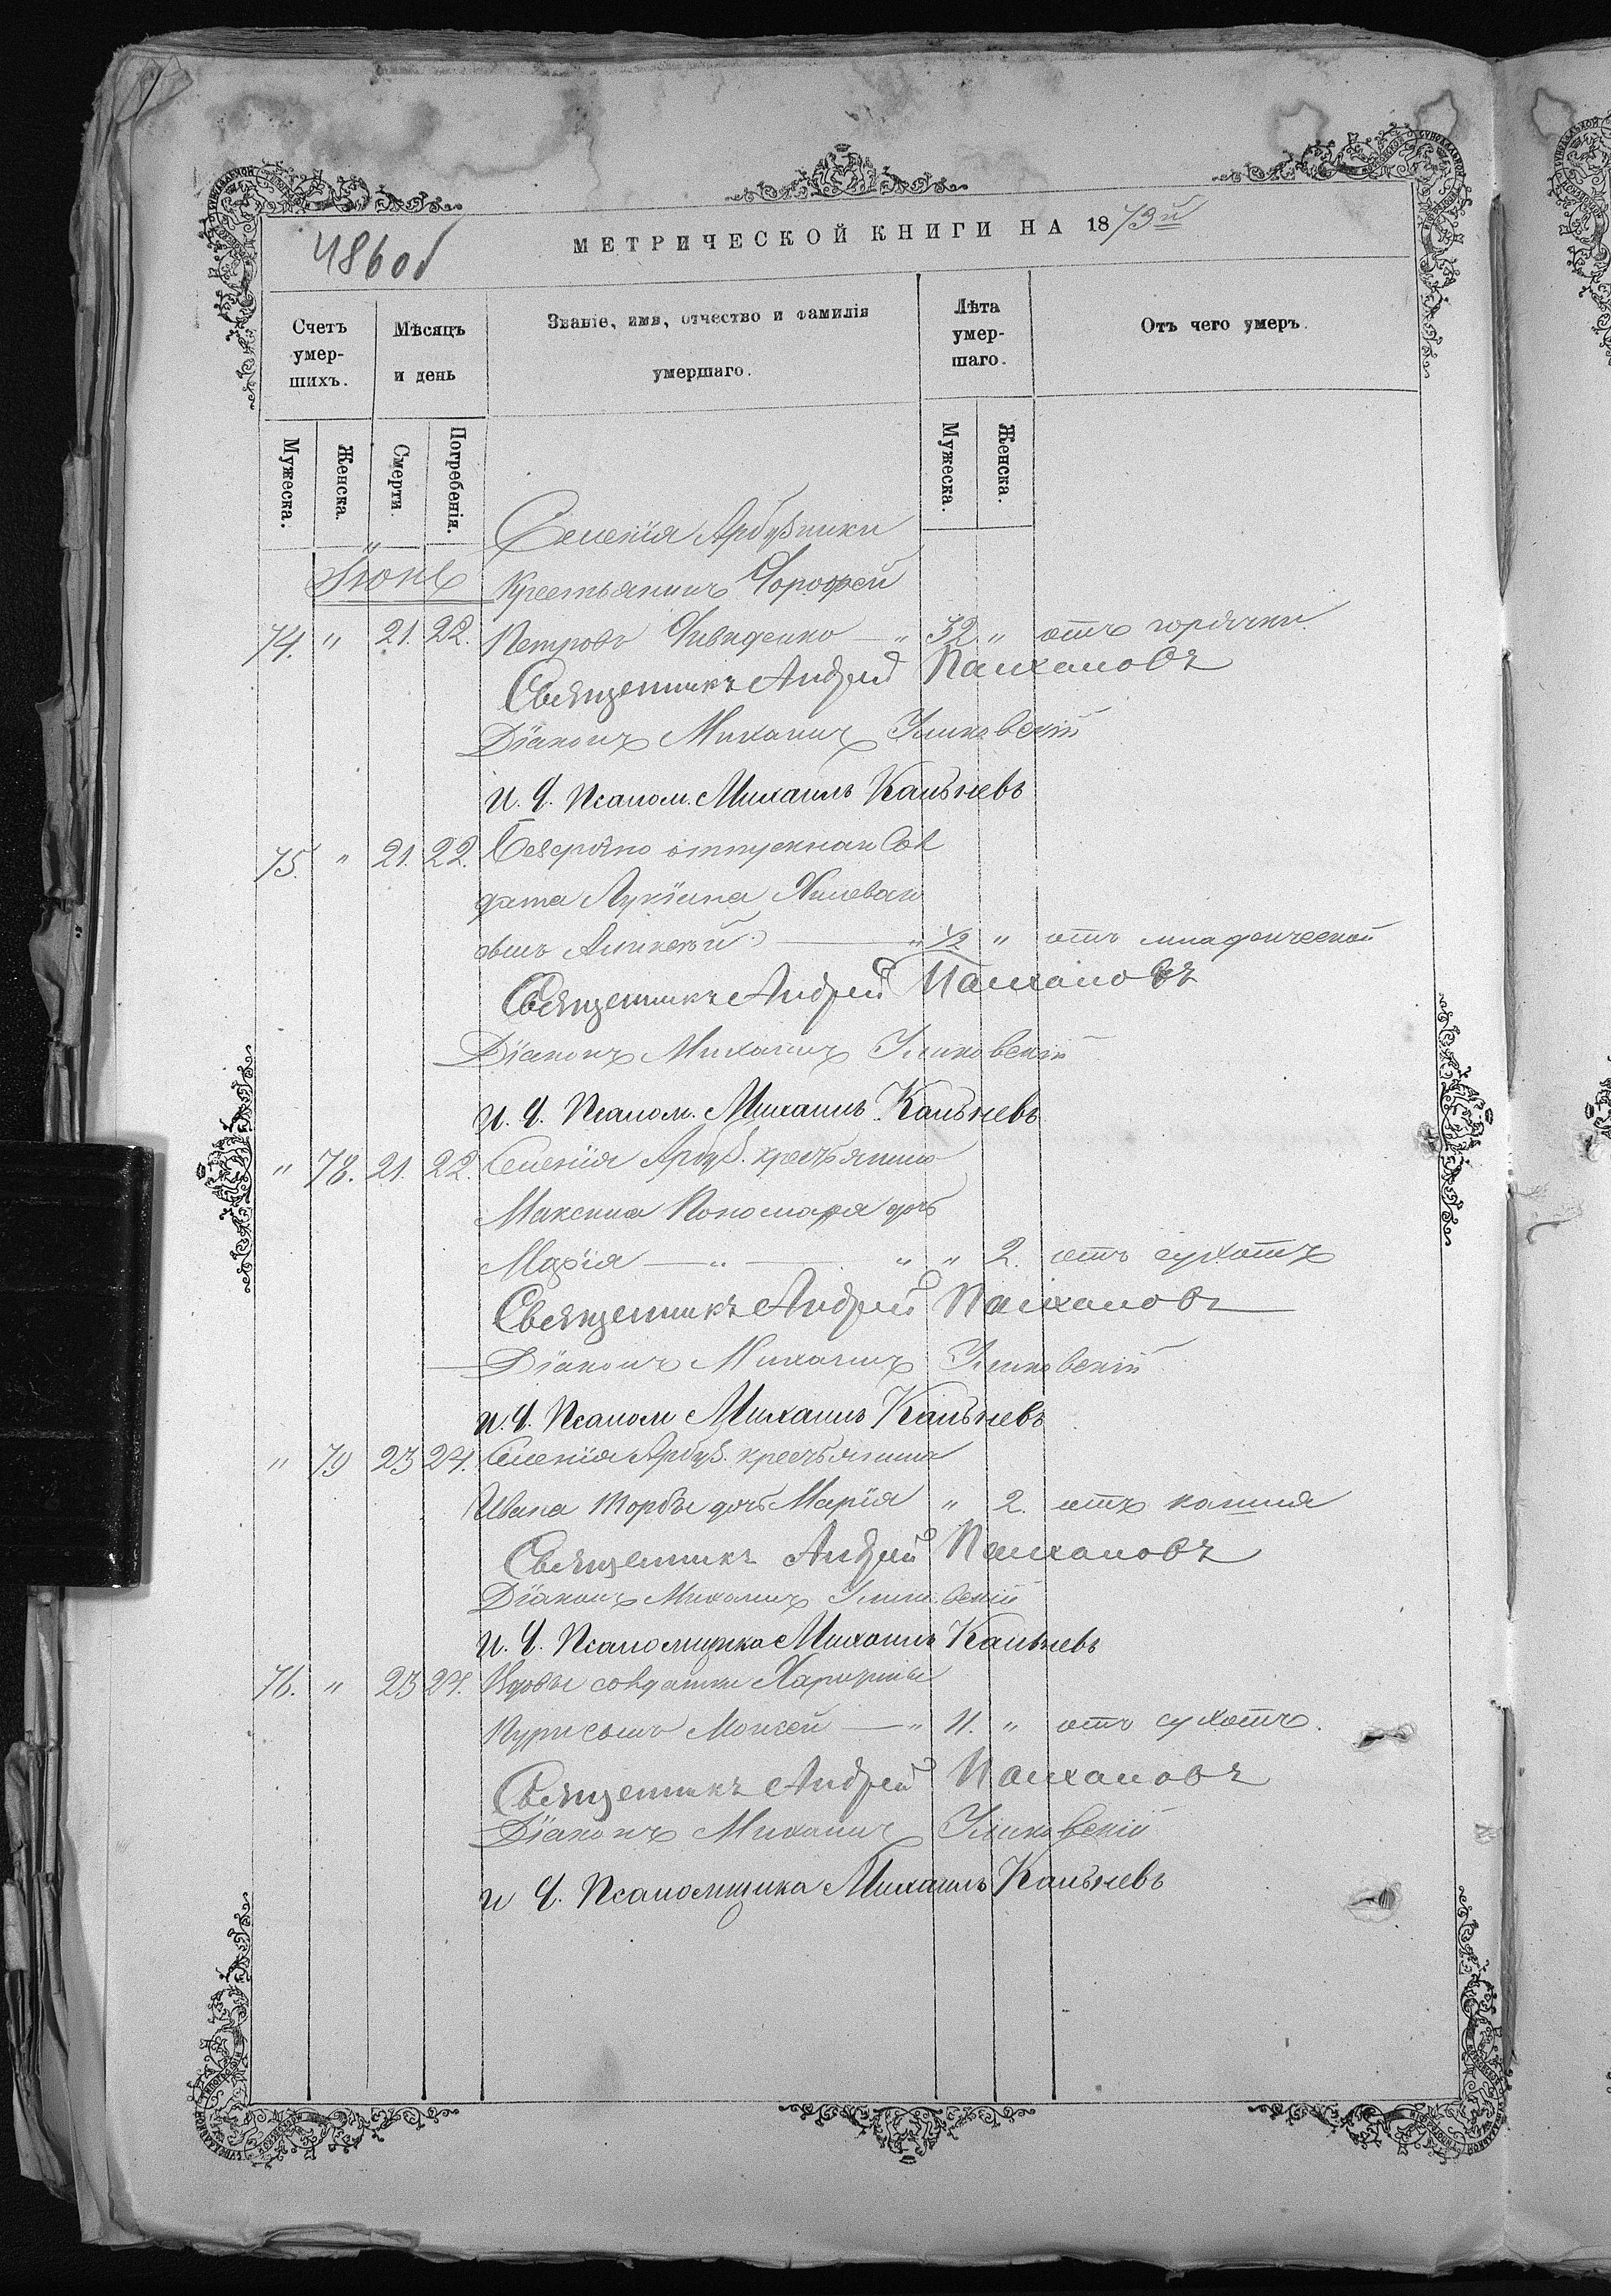 486 об
МЕТРИЧЕСКОЙ КНИГИ НА 1873й
Счетъ умер-шихъ.
Мѣсяцъ и день
Званіе, имя, отчество и фамилія умершаго.
Лѣта умер-шаго.
Отъ чего умеръ.
Мужеска.
Женска.
Смерти.
Погребенія.
Мужеска.
Женска.
Селенія Арбузинки
Іюнь Крестьянинъ Дорофей
74. " 21. 22. Петровъ — " 32 " отъ горячки.
Священникъ Андрей Палхаловъ
Діаконъ Михаилъ
И. д. Псалом. Михаилъ Кальневъ
75. " 21. 22. Безсрочно отпускнаго Сол
дата Лукіана
сынъ Алексѣй — " 1/2 " отъ младенческой
Священникъ Андрей Палхаловъ
Діаконъ Михаилъ
И. д. Псалом. Михаилъ Кальневъ
" 78. 21. 22. Селенія Арбуз. крестьянина
Максима Пономаря дочь
Марія — " — " " 2. отъ сухотъ
Священникъ Андрей Палхаловъ
Діаконъ Михаилъ
И. д. Псалом Михаилъ Кальневъ
" 79 23 24. Селенія Арбуз. крестьянина
Ивана Торбы дочь Марія " 2. отъ кашля
Священникъ Андрей Палхаловъ
Діаконъ Михаилъ
И. д. Псаломщика Михаилъ Кальневъ
76. " 23 24. Вдовы солдатки Харитины
сынъ Моисей — " 11. " отъ сухотъ.
Священникъ Андрей Палхаловъ
Діаконъ Михаилъ
И д. Псаломщика Михаилъ Кальневъ